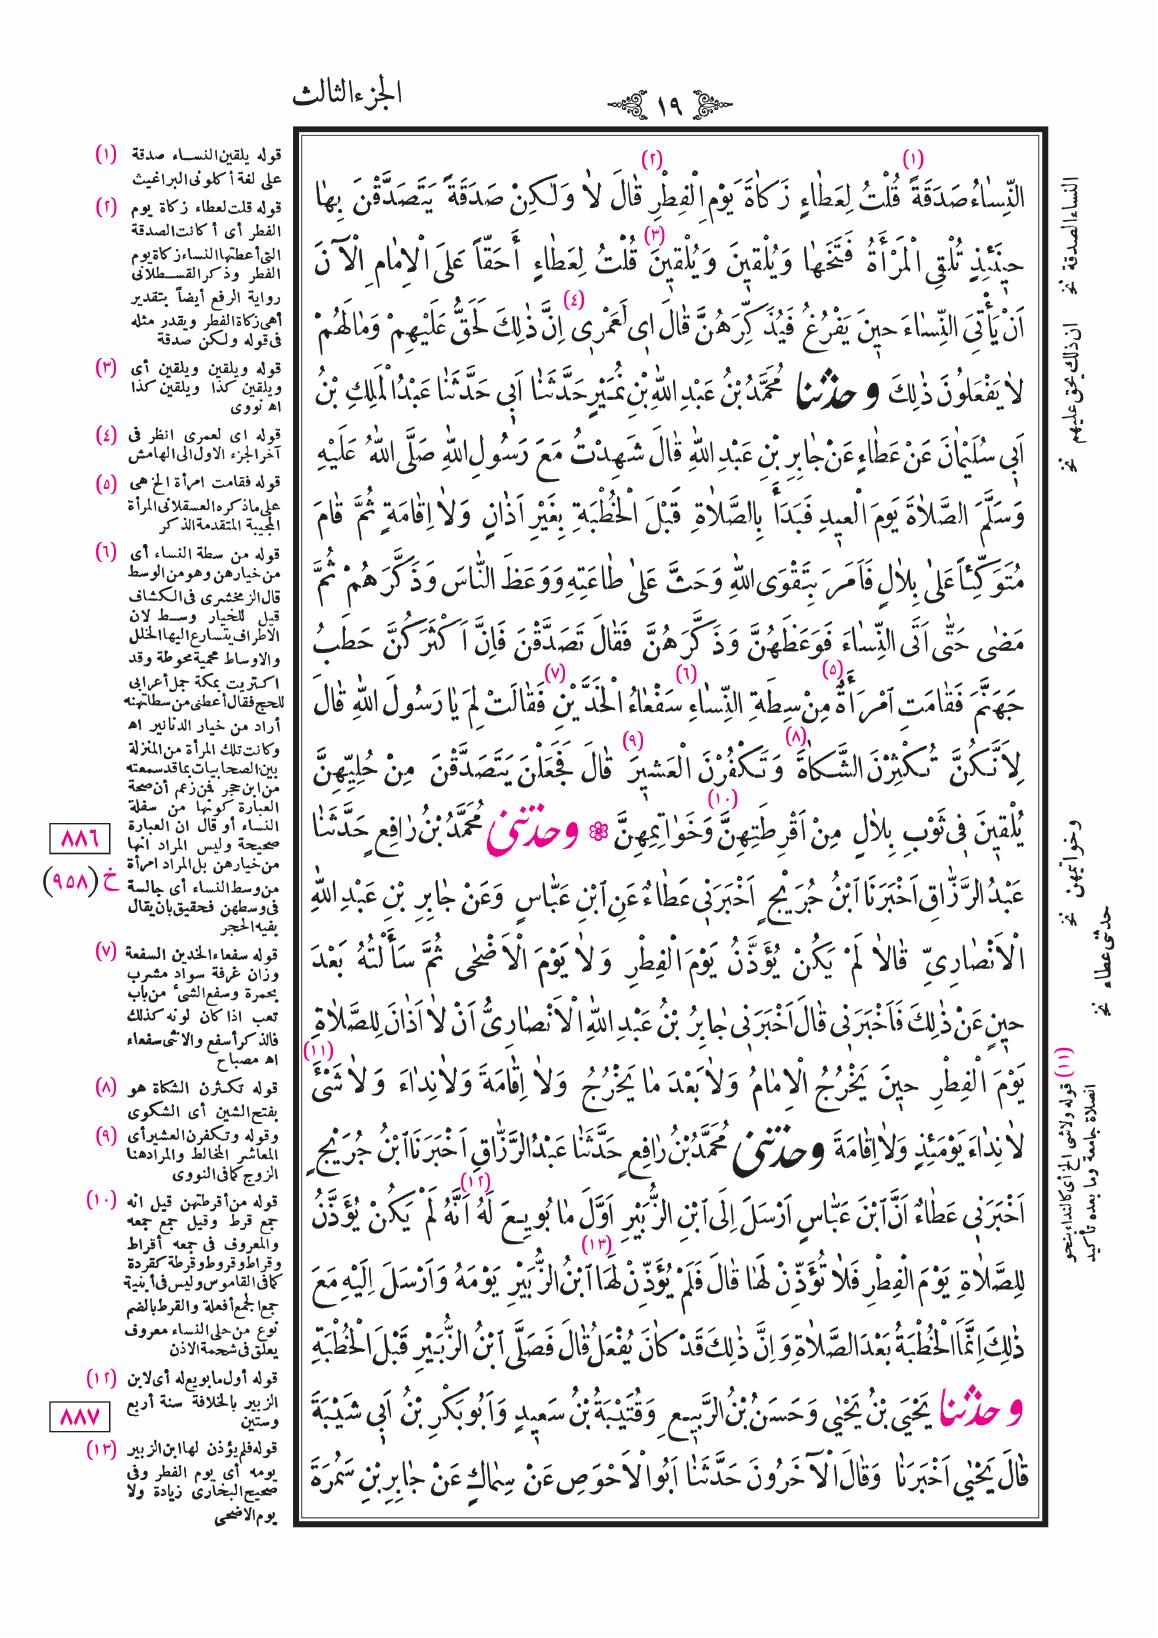 ١٩
الجزء الثالث
النِّسَاءُ صَدَقَةً (١) قُلْتُ لِعَطَاءٍ زَكَاةَ يَوْمِ الْفِطْرِ (٢) قَالَ لَا وَلٰكِنْ صَدَقَةً يَتَصَدَّقْنَ بِهَا
حِينَئِذٍ تُلْقِي الْمَرْأَةُ فَتَخَهَا وَيُلْقِينَ وَيُلْقِينَ (٣) قُلْتُ لِعَطَاءٍ أَحَقّاً عَلَى الْإِمَامِ الْآنَ
اَنْ يَأْتِىَ النِّسَاءَ حِينَ يَفْرُغُ فَيُذَكِّرَهُنَّ قَالَ اِى لَعَمْرِى (٤) اِنَّ ذٰلِكَ لَحَقٌّ عَلَيْهِمْ وَمَالَهُمْ
لَا يَفْعَلُونَ ذٰلِكَ وحدثنا مُحَمَّدُ بْنُ عَبْدِ اللهِ بْنِ نُمَيْرٍ حَدَّثَنَا اَبِى حَدَّثَنَا عَبْدُ الْمَلِكِ بْنُ
اَبِى سُلَيْمَانَ عَنْ عَطَاءٍ عَنْ جَابِرِ بْنِ عَبْدِ اللهِ قَالَ شَهِدْتُ مَعَ رَسُولِ اللهِ صَلَّى اللهُ عَلَيْهِ
وَسَلَّمَ الصَّلَاةَ يَوْمَ الْعِيدِ فَبَدَأَ بِالصَّلَاةِ قَبْلَ الْخُطْبَةِ بِغَيْرِ اَذَانٍ وَلَا اِقَامَةٍ ثُمَّ قَامَ
مُتَوَكِّئاً عَلَى بِلَالٍ فَاَمَرَ بِتَقْوَى اللهِ وَحَثَّ عَلَى طَاعَتِهِ وَوَعَظَ النَّاسَ وَذَكَّرَهُمْ ثُمَّ
مَضَى حَتَّى اَتَى النِّسَاءَ فَوَعَظَهُنَّ وَذَكَّرَهُنَّ فَقَالَ تَصَدَّقْنَ فَاِنَّ اَكْثَرَكُنَّ حَطَبُ
جَهَنَّمَ فَقَامَتِ اَمْرَأَةٌ (٥) مِنْ سِطَةِ النِّسَاءِ (٦) سَفْعَاءُ الْخَدَّيْنِ (٧) فَقَالَتْ لِمَ يَا رَسُولَ اللهِ قَالَ
لِاَنَّكُنَّ تُكْثِرْنَ الشَّكَاةَ (٨) وَتَكْفُرْنَ الْعَشِيرَ (٩) قَالَ فَجَعَلْنَ يَتَصَدَّقْنَ مِنْ حُلِيِّهِنَّ
يُلْقِينَ فِى ثَوْبِ بِلَالٍ مِنْ اَقْرِطَتِهِنَّ (١٠) وَخَوَاتِمِهِنَّ ❁ وحدثنى مُحَمَّدُ بْنُ رَافِعٍ حَدَّثَنَا
عَبْدُ الرَّزَّاقِ اَخْبَرَنَا ابْنُ جُرَيْجٍ اَخْبَرَنِى عَطَاءٌ عَنِ ابْنِ عَبَّاسٍ وَعَنْ جَابِرِ بْنِ عَبْدِ اللهِ
الْاَنْصَارِىِّ قَالَا لَمْ يَكُنْ يُؤَذَّنُ يَوْمَ الْفِطْرِ وَلَا يَوْمَ الْاَضْحَى ثُمَّ سَأَلْتُهُ بَعْدَ
حِينٍ عَنْ ذٰلِكَ فَاَخْبَرَنِى قَالَ اَخْبَرَنِى جَابِرُ بْنُ عَبْدِ اللهِ الْاَنْصَارِىُّ اَنْ لَا اَذَانَ لِلصَّلَاةِ
يَوْمَ الْفِطْرِ حِينَ يَخْرُجُ الْاِمَامُ وَلَا بَعْدَ مَا يَخْرُجُ وَلَا اِقَامَةَ وَلَا نِدَاءَ وَلَا شَىْءَ (١١)
لَا نِدَاءَ يَوْمَئِذٍ وَلَا اِقَامَةَ وحدثنى مُحَمَّدُ بْنُ رَافِعٍ حَدَّثَنَا عَبْدُ الرَّزَّاقِ اَخْبَرَنَا ابْنُ جُرَيْجٍ
اَخْبَرَنِى عَطَاءٌ اَنَّ ابْنَ عَبَّاسٍ اَرْسَلَ اِلَى ابْنِ الزُّبَيْرِ اَوَّلَ مَا بُويِعَ لَهُ (١٢) اَنَّهُ لَمْ يَكُنْ يُؤَذَّنُ
لِلصَّلَاةِ يَوْمَ الْفِطْرِ فَلَا تُؤَذِّنْ لَهَا قَالَ فَلَمْ يُؤَذِّنْ لَهَا (١٣) ابْنُ الزُّبَيْرِ يَوْمَهُ وَاَرْسَلَ اِلَيْهِ مَعَ
ذٰلِكَ اِنَّمَا الْخُطْبَةُ بَعْدَ الصَّلَاةِ وَاِنَّ ذٰلِكَ قَدْ كَانَ يُفْعَلُ قَالَ فَصَلَّى ابْنُ الزُّبَيْرِ قَبْلَ الْخُطْبَةِ
وحدثنا يَحْيَى بْنُ يَحْيَى وَحَسَنُ بْنُ الرَّبِيعِ وَقُتَيْبَةُ بْنُ سَعِيدٍ وَاَبُو بَكْرِ بْنُ اَبِى شَيْبَةَ
قَالَ يَحْيَى اَخْبَرَنَا وَقَالَ الْآخَرُونَ حَدَّثَنَا اَبُو الْاَحْوَصِ عَنْ سِمَاكٍ عَنْ جَابِرِ بْنِ سَمُرَةَ
النساء الصدقة نخ
ان ذلك يحق عليهم نخ
وخواتيمهن نخ
حدثنى عطاء نخ
(١١) قوله ولا شئ الخ أى كالنداء بنحو
الصلاة جامعة وما بعده تأكيد
(١) قوله يلقين النساء صدقة
على لغة أكلونى البراغيث
(٢) قوله قلت لعطاء زكاة يوم
الفطر أى أكانت الصدقة
التى أعطتها النساء زكاة يوم
الفطر وذكر القسطلانى
رواية الرفع أيضاً بتقدير
أهى زكاة الفطر ويقدر مثله
فى قوله ولكن صدقة
(٣) قوله ويلقين ويلقين أى
ويلقين كذا ويلقين كذا
اه نووى
(٤) قوله اى لعمرى انظر فى
آخر الجزء الاول الى الهامش
(٥) قوله فقامت امرأة الخ هى
على ما ذكره العسقلانى المرأة
المجيبة المتقدمة الذكر
(٦) قوله من سطة النساء أى
من خيارهن وهو من الوسط
قال الزمخشرى فى الكشاف
قيل للخيار وسط لان
الاطراف يتسارع اليها الخلل
والاوساط محمية محوطة وقد
اكتريت بمكة جمل أعرابى
للحج فقال أعطنى من سطاتهنه
أراد من خيار الدنانير اه
وكانت تلك المرأة من المنزلة
بين الصحابيات بما قد سمعته
من ابن حجر فمن زعم أن صحة
العبارة كونها من سفلة
النساء أو قال ان العبارة
صحيحة وليس المراد انها
من خيارهن بل المراد امرأة
من وسط النساء أى جالسة
فى وسطهن فحقيق بان يقال
بفيه الحجر
٨٨٦
خ (٩٥٨)
(٧) قوله سفعاء الخدين السفعة
وزان غرفة سواد مشرب
بحمرة وسفع الشئ من باب
تعب اذا كان لونه كذلك
فالذكر أسفع والانثى سفعاء
اه مصباح
(٨) قوله تكثرن الشكاة هو
بفتح الشين أى الشكوى
(٩) وقوله وتكفرن العشير أى
المعاشر المخالط والمراد هنا
الزوج كما فى النووى
(١٠) قوله من أقرطتهن قيل انه
جمع قرط وقيل جمع جمعه
والمعروف فى جمعه أقراط
وقراط وقروط وقرطة كقردة
كما فى القاموس وليس فى أبنية
جمع الجمع أفعلة والقرط بالضم
نوع من حلى النساء معروف
يعلق فى شحمة الاذن
(١٢) قوله أول ما بويع له أى لابن
الزبير بالخلافة سنة أربع
وستين
٨٨٧
(١٣) قوله فلم يؤذن لها ابن الزبير
يومه أى يوم الفطر وفى
صحيح البخارى زيادة ولا
يوم الاضحى